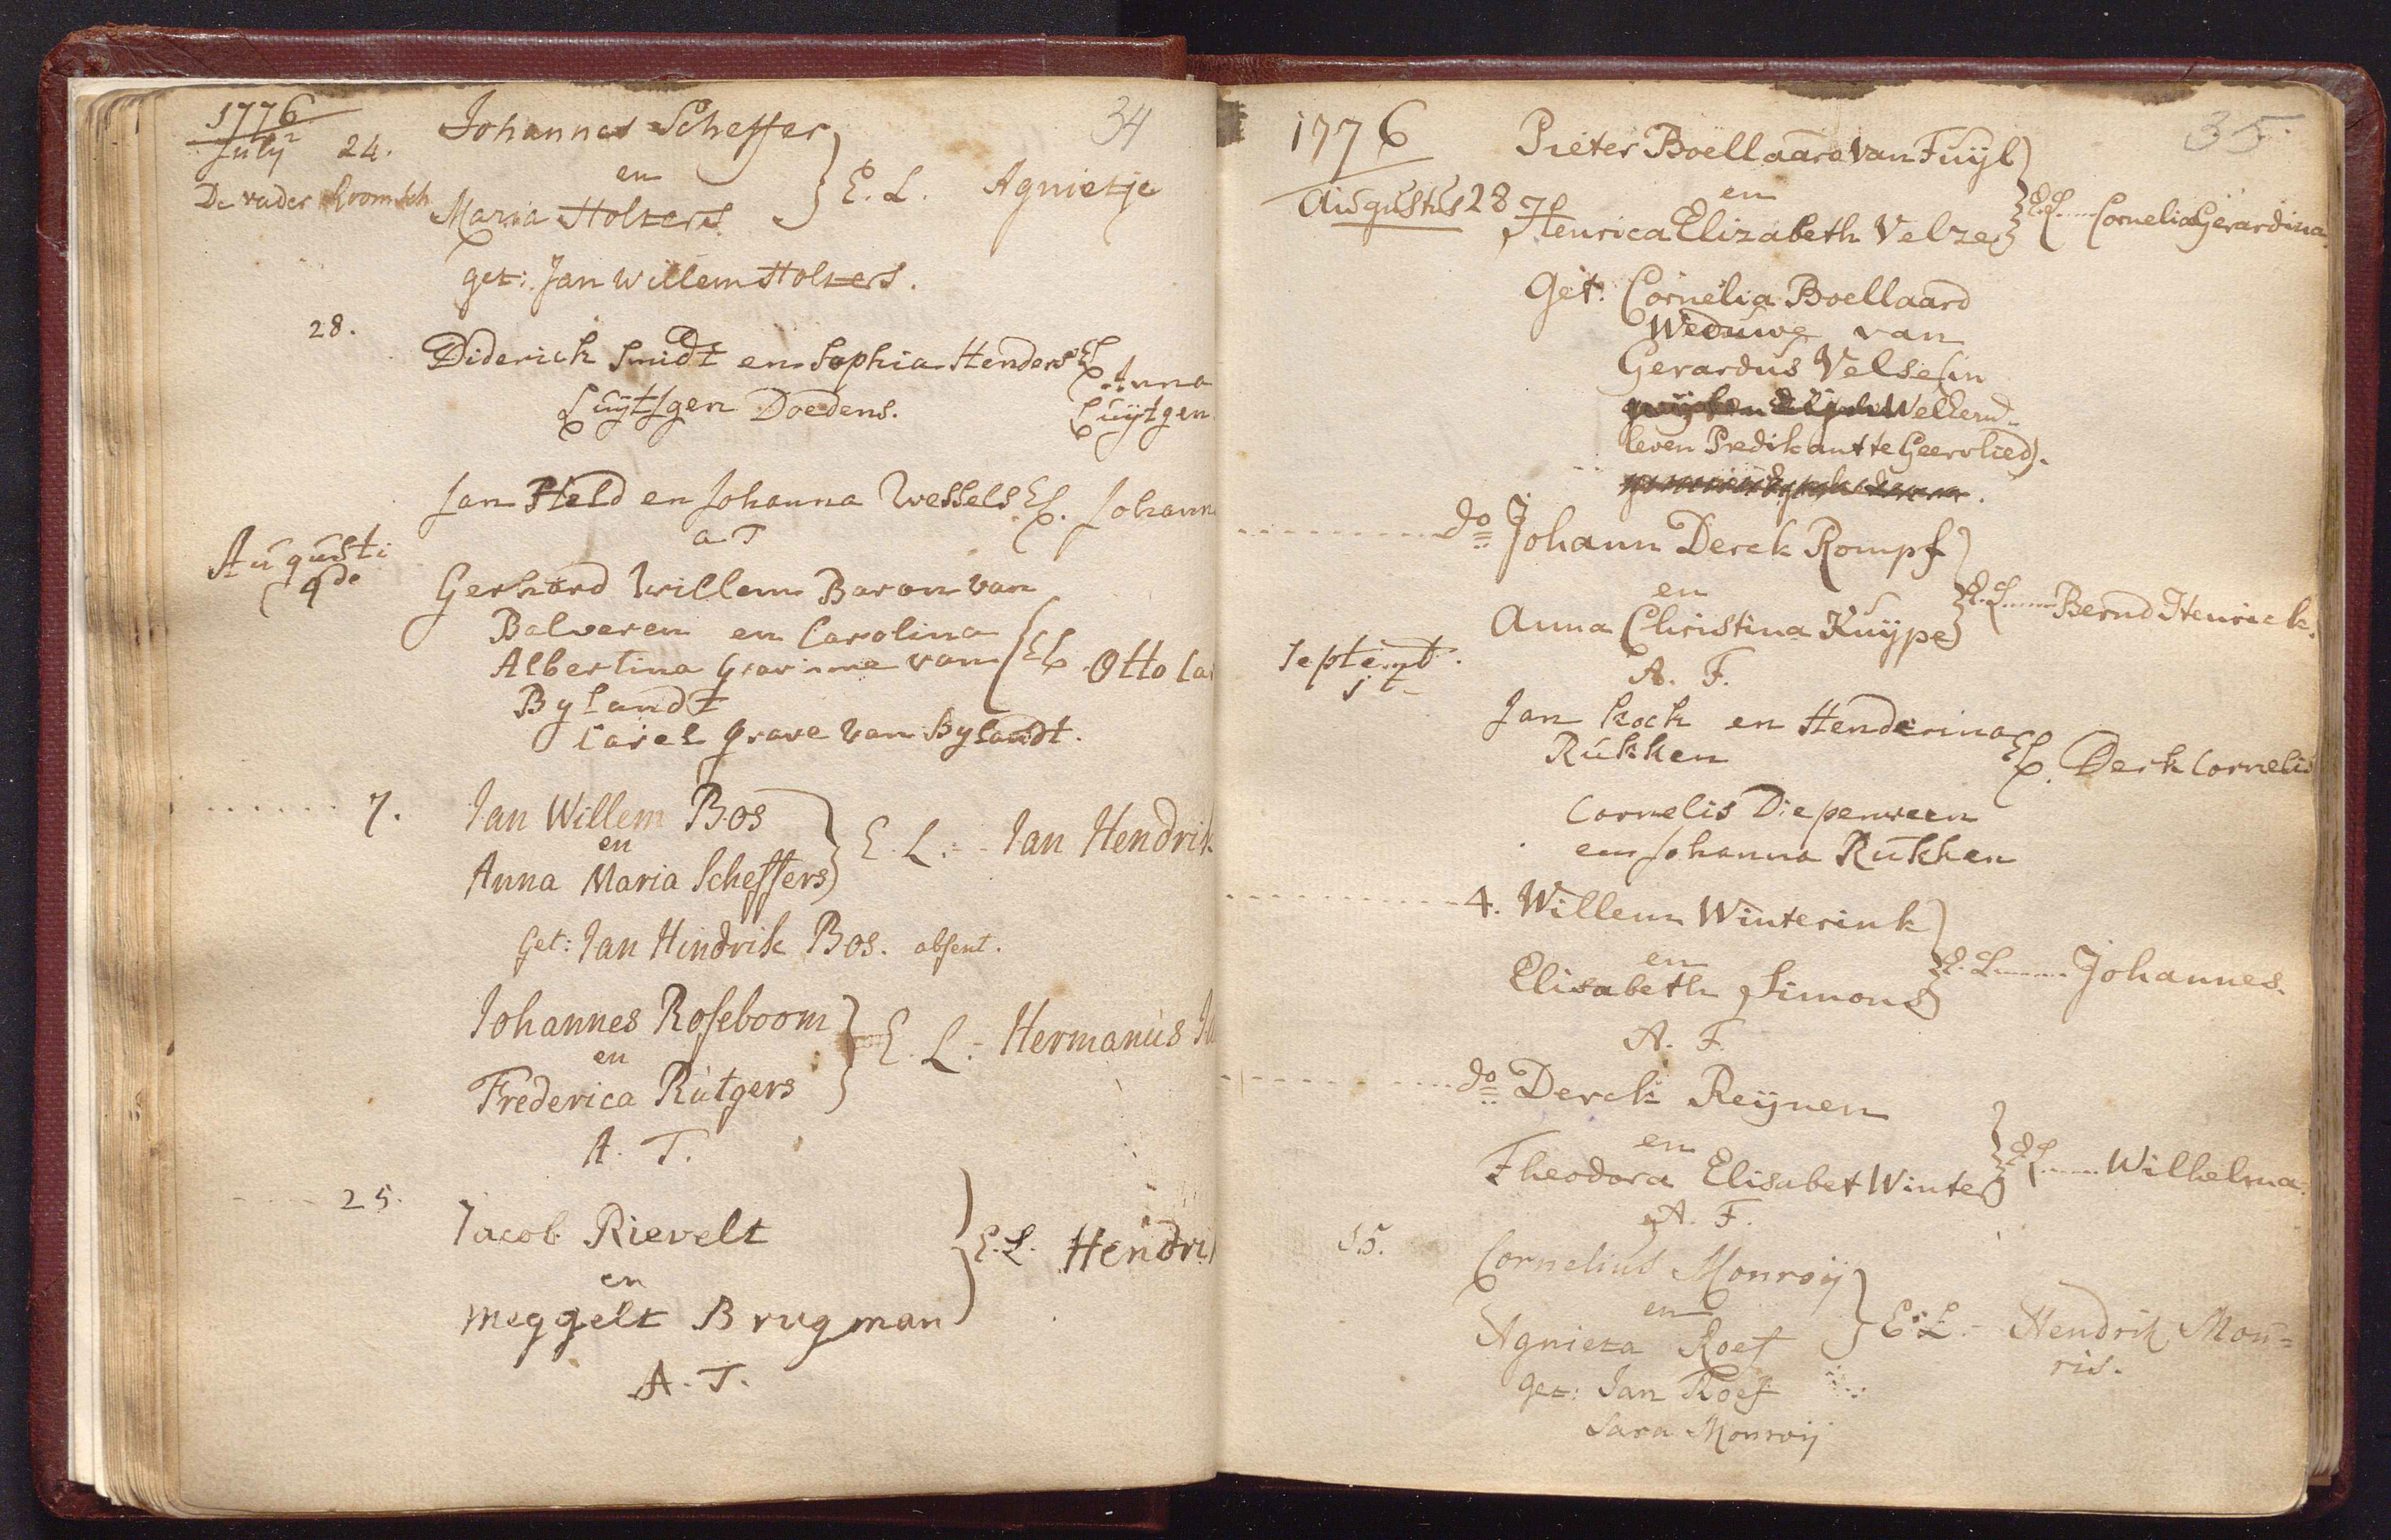 1776 34
July 24. Johannes Scheffer
en } E. L. Agnietje
De vader Roomsch
Maria Holters
get: Jan Willem Holters.
28. Diderich Smidt en Sophia Henders EL Anna
Luÿtsgen Doedens. Luÿtgen
Jan Held en Johanna Wessels. EL. Johann
a T
Augusti
4de Gerhard Willem Baron van
Balveren en Carolina
Albertina Gravinne van { EL Otto Ca
Bylandt
Carel Grave van Bylandt.
7. Jan Willem Bos
en } E. L. Jan Hendrik
Anna Maria Scheffers
Get: Jan Hindrik Bos. absent.
Johannes Roseboom
en } E. L. Hermanus
Frederica Rutgers
A. T.
25. Jacob Rievelt
en } E. L. Hendri
Meggelt Brugman
A. T.
1776 35
Pieter Boellaard van Tuijl
en } E. L. Cornelia Gerardina
Augustus 28 Henrica Elizabeth Velze
Get: Cornelia Boellaard
Weduwe van
Gerardus Velse (in
leven Predikant te Geervlied).
do Johann Derck Rompf
en } E. L. Bernd Henrick.
Anna Christina Kuÿpe
A. F.
Septemb.
1t Jan Kock en Henderina
Rukken EL. Derk Cornelis
Cornelis Diepenveen
en Johanna Rukken
4. Willem Winterink
en } E. L. Johannes.
Elisabeth Simons
A. F.
do Derck Reÿnen
en } E L Wilhelma.
Theodora Elisabet Winter
A. F.
15. Cornelius Monroij
en } E. L. Hendrik Mon=
Agnieta Roef ris.
get: Jan Roef
Sara Monroij